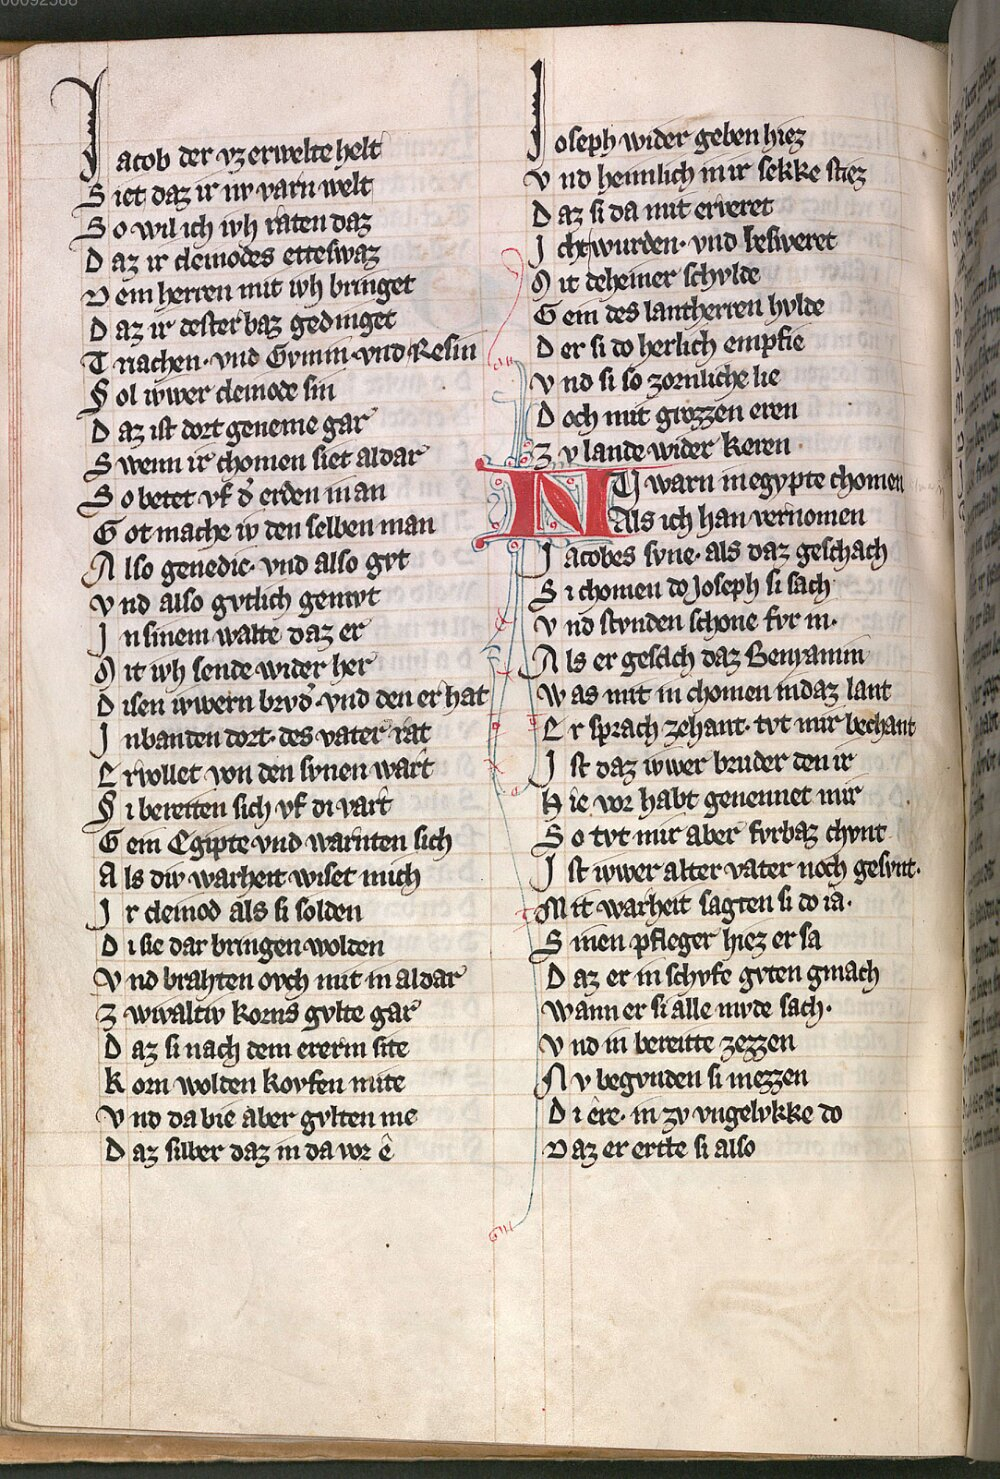 00092588
Jacob der vzerwelte helt
Siet daz ir nv varn welt
So wil ich iwh raten daz
Daz ir cleinodes etteswaz
Dem herren mit iwh bringet
Daz ir dester baz gedinget
Tnachen· vnd Gymin· vnd Resin
Sol iwwer cleinode sin
Daz ist dort geneme gar
Swenn ir chomen siet aldar
So betet vf d̾ erden in an
Got mache iv den selben man
Also genedic· vnd also gvt
Vnd also gvtlich gemvt
Jn sinem walte daz er
Mit iwh sende wider her
Disen iwwern brvd̾· vnd den er hat
Jn banden dort· des vater rat
Ervollet von den synen wart
Si bereiten sich vf di vart
Gein Egipte vnd warnten sich
Als div warheit wiset mich
Jr cleinod als si solden
Di sie dar bringen wolden
Vnd brahten ovch mit in aldar
Zwivaltiv korns gvlte gar
Daz si nach dem ererm site
Korn wolden kovfen mite
Vnd da bie aber gvlten me
Daz silber daz in da vor ê
Joseph wider geben hiez
Vnd heimlich in ir sekke stiez
Daz si da mit erveret
Jcht wurden· vnd besweret
Mit deheiner schvlde
Gein des lantherren hvlde
Der si do herlich empfie
Vnd si so zornliche lie
Doch mit grozzen eren
Zv lande wider keren
NV warn in egypte chomen
Als ich han vernomen
Jacobes svne· als daz geschach
Si chomen do Joseph si sach
Vnd stvnden schone fvr in·
Als er gesach daz Benyamin
Was mit in chomen in daz lant
Er sprach zehant· tvt mir bechant
Jst daz iwwer bruder den ir
Hie vor habt genennet mir
So tvt mir aber fvrbaz chvnt
Jst iwwer alter vater noch gesvnt·
Mit warheit sagten si do ia·
Sinen pfleger hiez er sa
Daz er in schvfe gvten gmach
Wann er si alle mvde sach·
Vnd in bereitte zezzen
Nv begvnden si mezzen
Di ere· in zv vngelvkke do
Daz er ertte si also